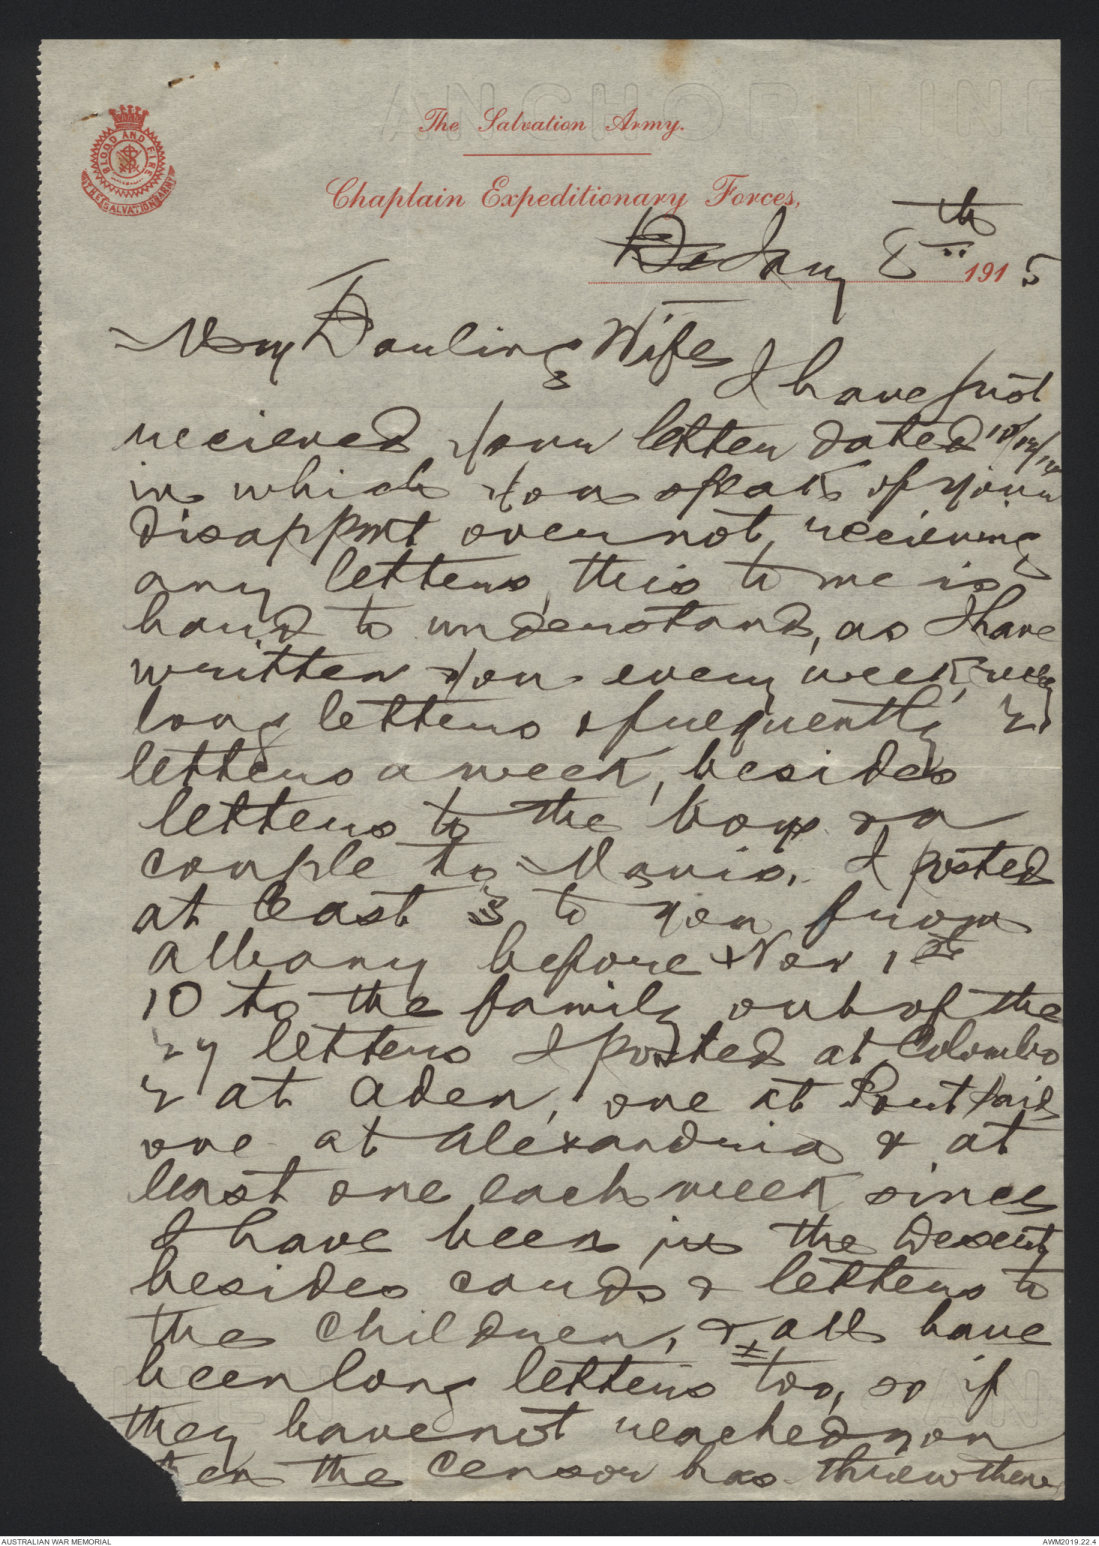 BLOOD AND FIRE
THE SALVATION ARMY
The Salvation Army.
Chaplain Expeditionary Forces,
Jany 8th 1915
My Darling Wife
I have just
recieved your letter dated
in which you speak of your
disappmt over not recieving
any letters, this to me is
hard to understand, as I have
written you every week, very
long letters & frequently 2
letters a week, besides
letters to the boys & a
couple to Mavis. I posted
at least 3 to you from
Albany before Nov 1st
10 to the family out of the
27 letters I posted at Colombo
2 at Aden, one at Port Said
one at Alexandria & at
least one each week since
I have been in the Desert
besides cards & letters to
the children, & all have
been long letters too, so if
they have not reached you
the Censor has threw them
AUSTRALIAN WAR MEMORIAL
AWM2019.22.4